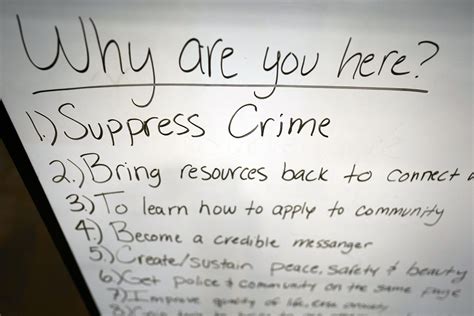 Why are you here?
1.) Suppress Crime
2.) Bring resources back to connect
3.) To learn how to apply to community
4.) Become a credible messanger
5.) Create/sustain peace, safety & beauty
6.) Get police & community on the same page
7.) Improve quality of life,